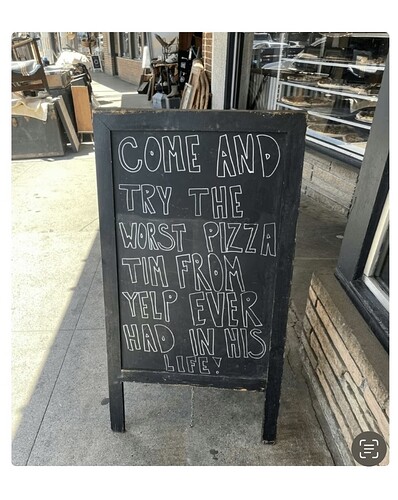 COME AND
TRY THE
WORST PIZZA
TIM FROM
YELP EVER
HAD IN HIS
LIFE!